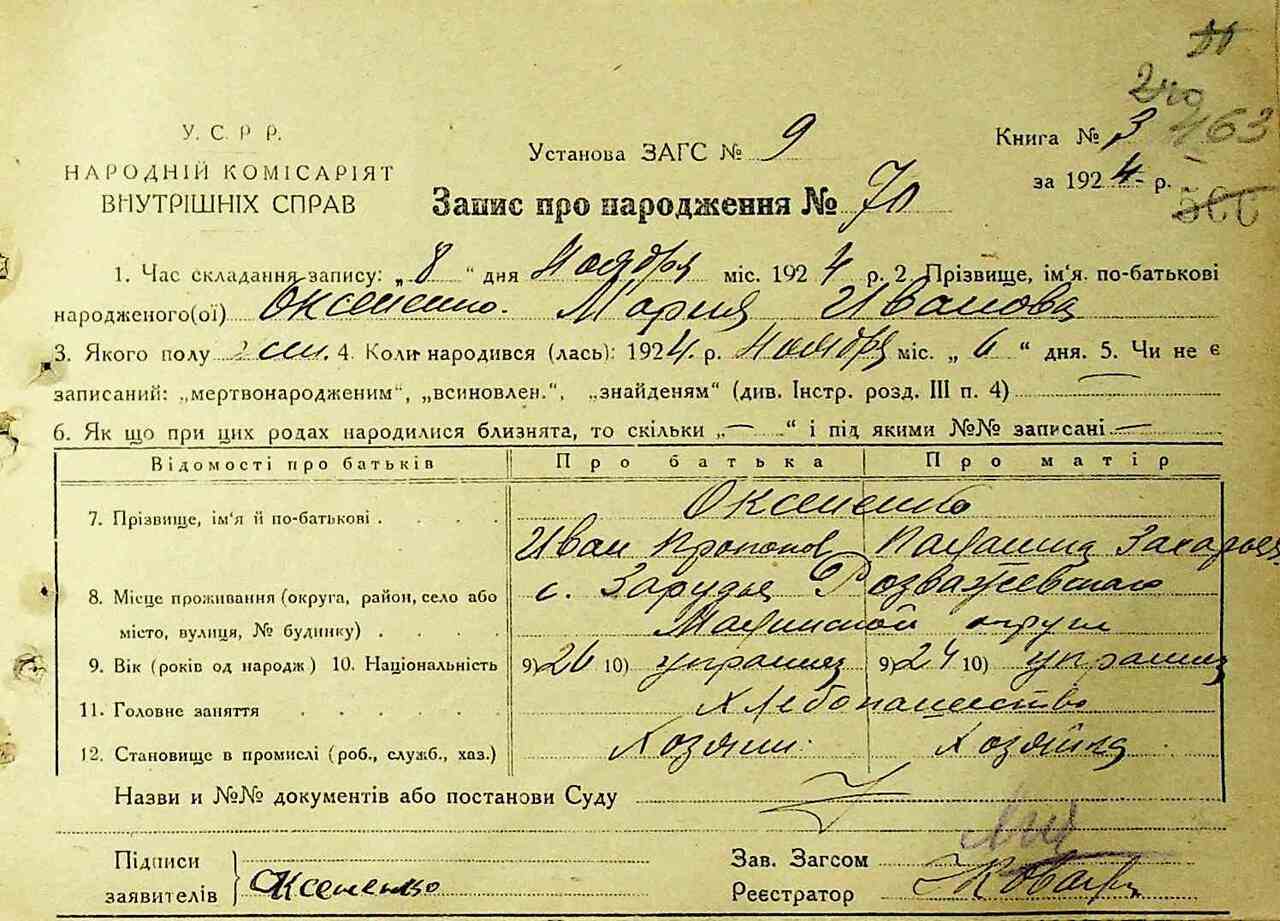 240
163
566
У. С. Р Р.
НАРОДНІЙ КОМІСАРІЯТ
ВНУТРІШНІХ СПРАВ
Установа ЗАГС № 9
Книга № 3
за 1924 р.
Запис про народження № 70
1. Час складання запису: „8“ дня Ноября міс. 1924 р. 2 Прізвище, ім'я. по-батькові
народженого(ої) Оксененко. Мария Иванова
3. Якого полу жен. 4. Коли народився (лась): 1924. р. Ноября міс. „6“ дня. 5. Чи не є
записаний: „мертвонародженим“, „всиновлен.“, „знайденям“ (див. Інстр. розд. III п. 4)
6. Як що при цих родах народилися близнята, то скільки „—“ і під якими №№ записані —
Відомості про батьків Про батька Про матір
7. Прізвище, ім'я й по-батькові . . . . Оксененко
Иван Прокопов Захарьев
8. Місце проживання (округа, район, село або с. Зарудья Розважевского
місто, вулиця, № будинку) . . . . округи
9. Вік (років од народж) 10. Національність 9) 26 10) украинец 9) 24 10) украинка
11. Головне заняття . . . . . . Хлебопашество
12. Становище в промислі (роб., служб., хаз.) Хозяин. Хозяйка
Назви и №№ документів або постанови Суду
Підписи
заявителів Оксененко
Зав. Загсом
Реєстратор